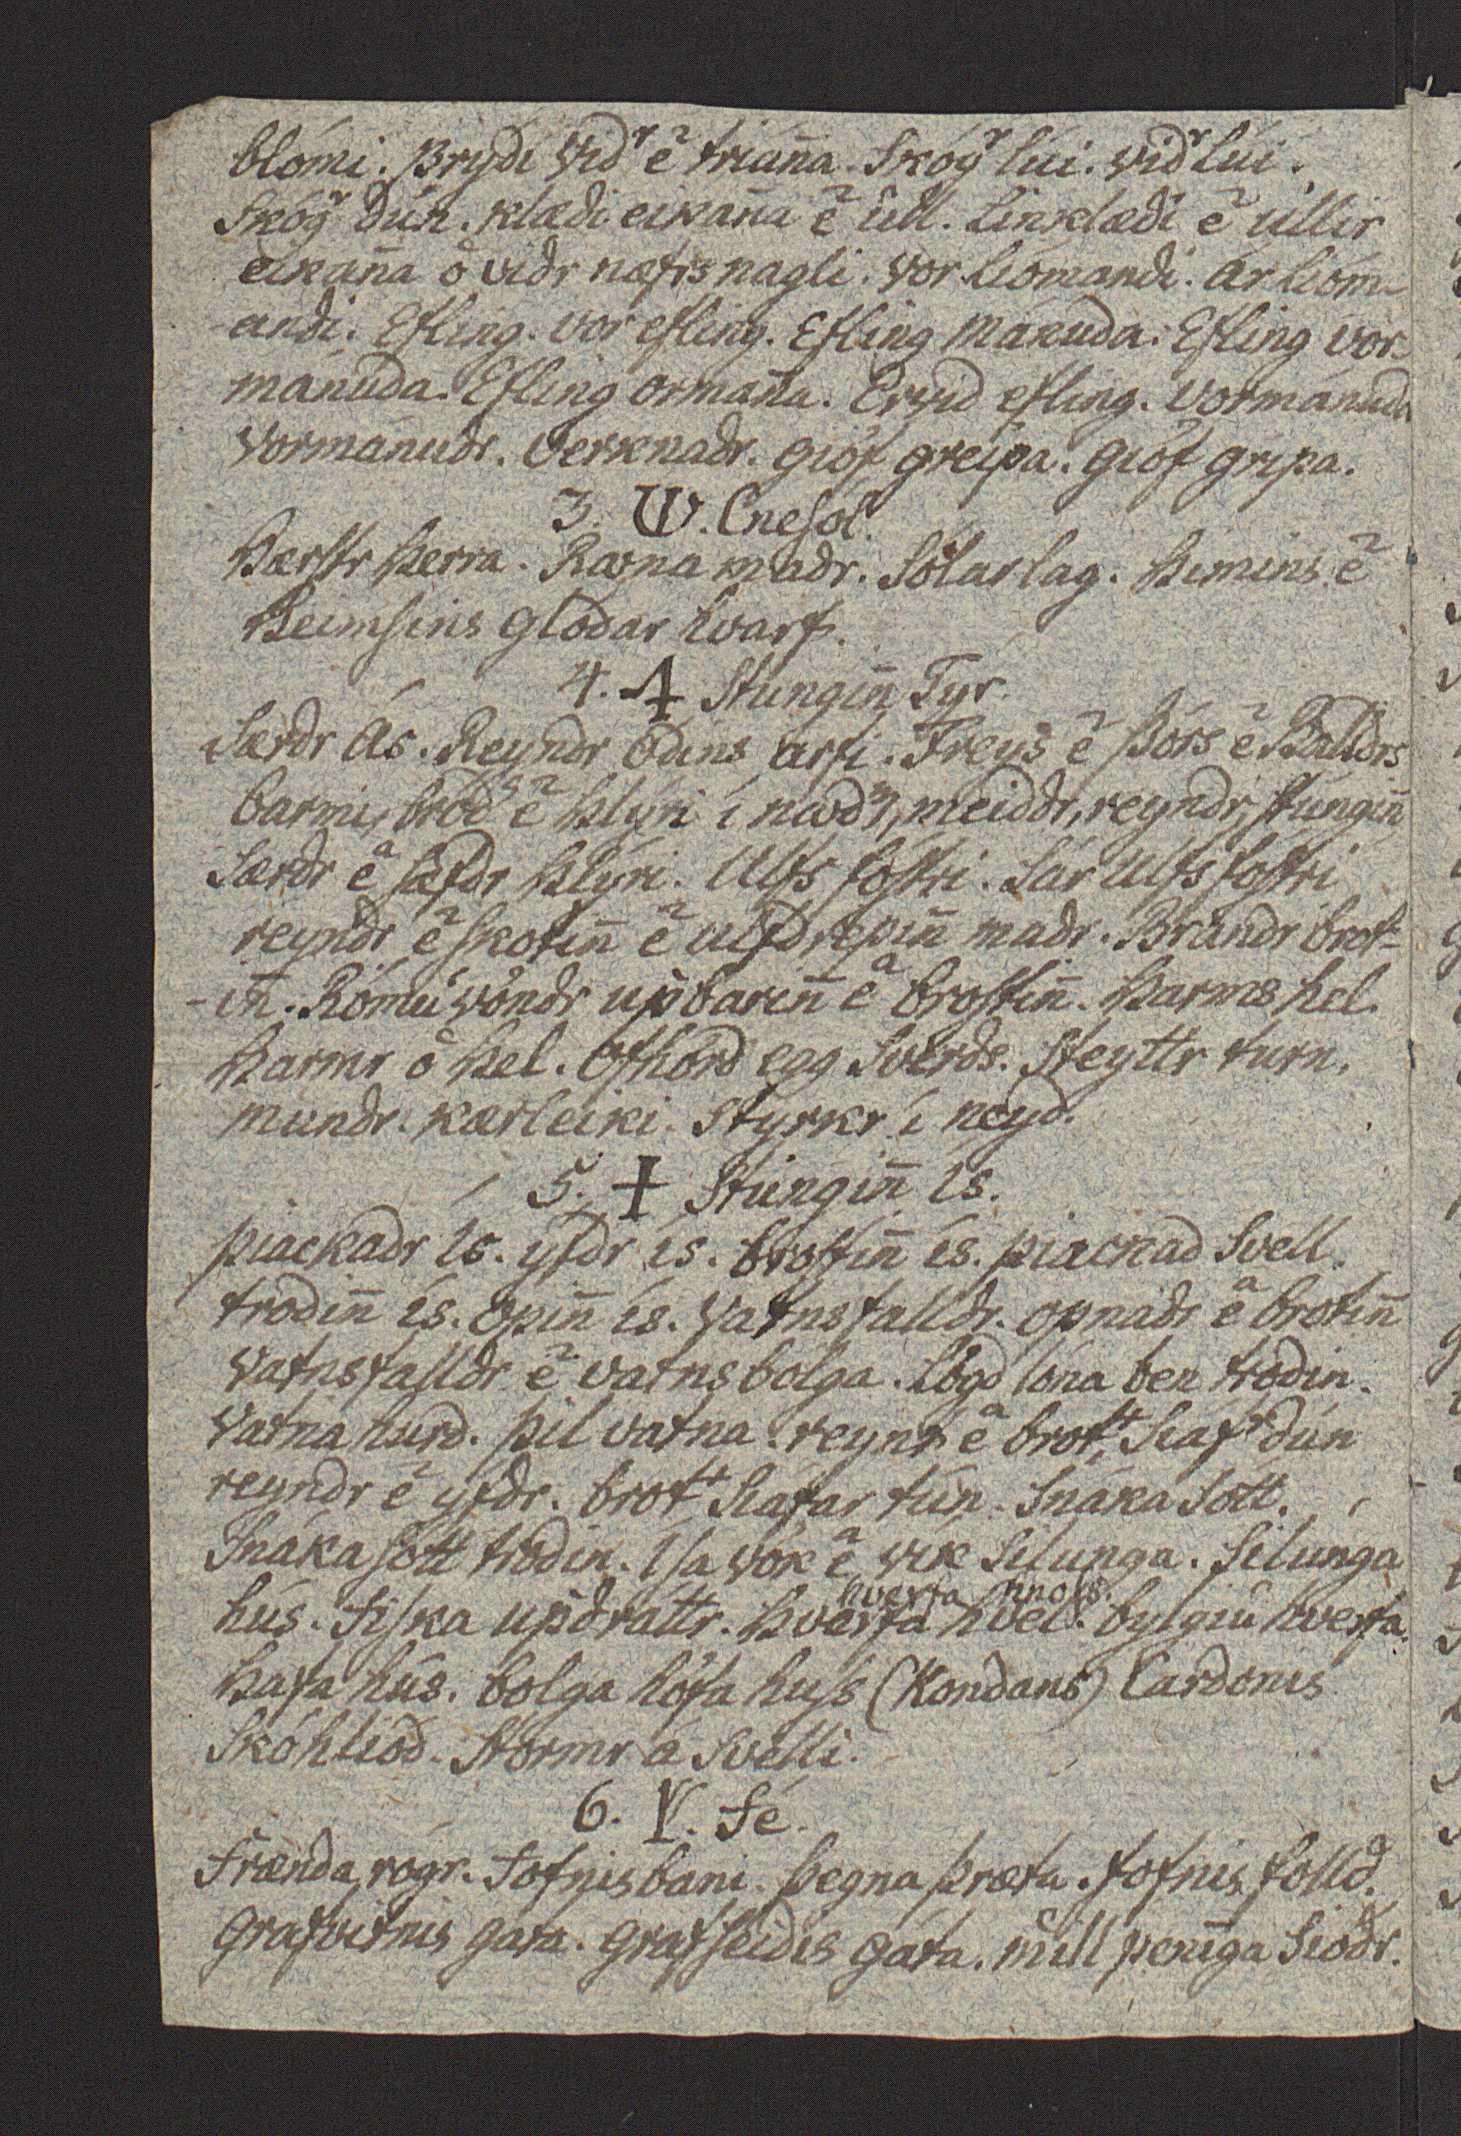 blómi. Prydi Viðʳ eˀ triaña. Skógʳ lúi. viðʳ lúi.
Skógʳ dún. klædi eikaña eˀ ull. Linklædi eˀ ullir
eikaña ỏ viðr næfrs nagli. vor liómandi. ár lióm-
andi. Efling. vor efling. Efling Mánuda. Efling vor-
mánuda. Efling ormaña. Pryd efling. Vormánuda
Vormánudr. Verknadr. giöf greipa. giöf gripa.
3. . Cnesol.
Hærstr Herra. Ræna madr. Sólarlag. himins eˀ
Heimsins glódar hvarf.
4. ᛏ Stungin̄ Týr.
Særdr Ás. Reyndr ódins arfi. Freys eˀ Þórs eˀ Balldrs
barmi, bród eˀ hlýri í næd, meiddr, reyndr, stungin̄
Særdr eᵃ sæfdr hlýri. Ulfs fóstri. Sár Ulfs fóstri
reyndr eˀ skotin̄ eˀ ulfdrepin̄ madr. Brandr brot-
-in̄. Rómu vöndr upbarin̄ eᵃ brostin̄. Harms hel
Harmr ỏ hel. Ofhörd egg Sverds. Steyttr turn.
mundr. kærleiki. Styrkr í neyd.
5. ᛂ Stungin̄ ís.
piackadr ís. yfdr ís. brostin̄ ís. piackad Svell.
trodin̄ ís. opin̄ ís. Vatnsfalldr. opnadr eᵃ brotin̄
Vatnsfalldr eˀ vatns bolga. lögd lóna ben trodin.
Vatna hurd. þil vatna. reynt eᵃ brotᵗ Siafʳ dún
reyndr eˀ yfdr. brotᵗ Siáfar tún. Snáka Sótt.
Snáka sótt trodin. ísa vök eᵃ vik Silunga. Silunga
hverfa hnoss.
hús. fiska updráttr. Hverfa hvel. bylgiu hverfa.
Hafa hús. bólga hófa huss (Kondans) Cardonis
Skóhliód. Stormr á Svelli.
6. ᚠ. Fé.
Frænda rógr. Fofnisbani. Þegna þræta. fofnis folld.
Grafvitnis gata. Grafseidis gáta. mill peninga Siódr.